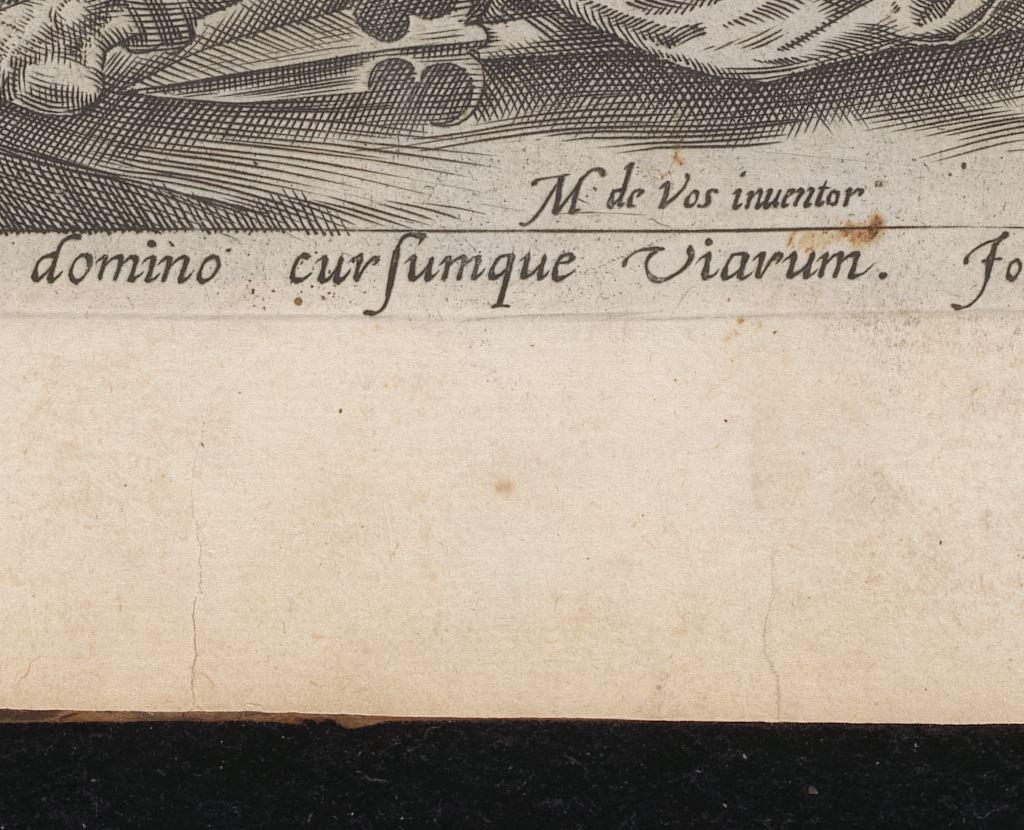 M de Vos inuentor
domino curſumque Viarum. Jo